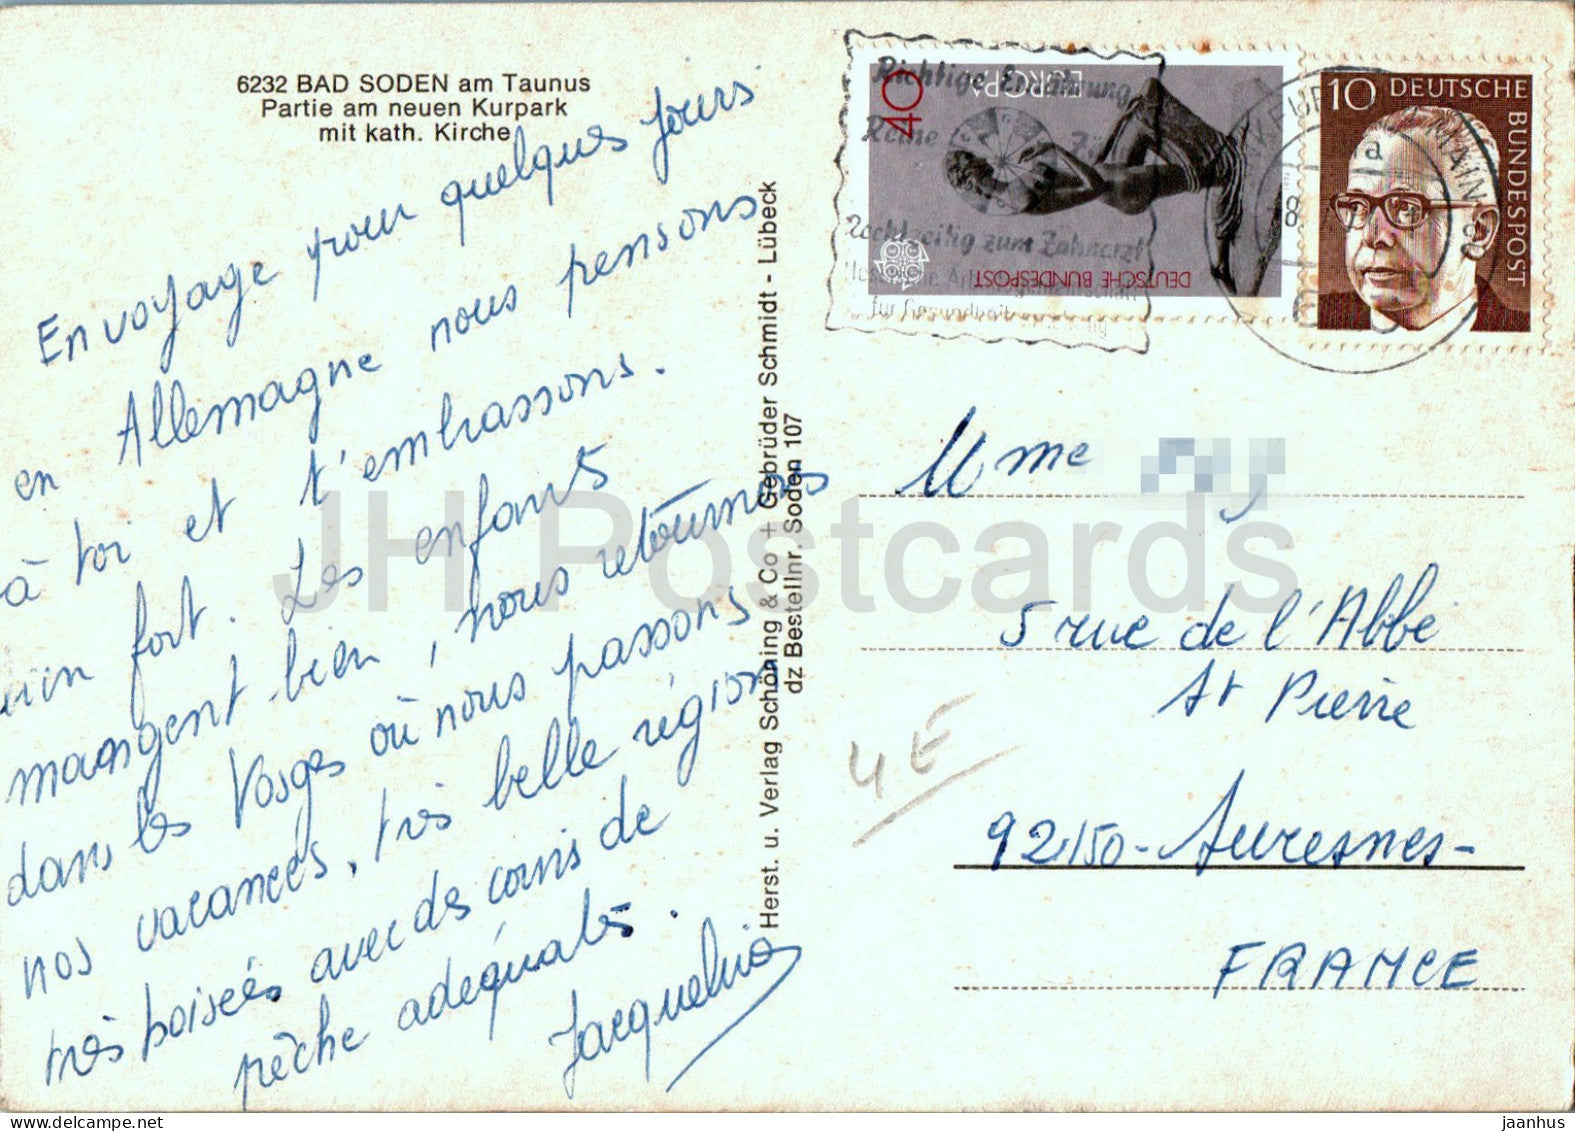 6232 BAD SODEN am Taunus
Partie am neuen Kurpark
mit kath. Kirche
En voyage pour quelques jours
en Allemagne nous pensons
à toi et t'embrassons.
bien fort. Les enfants
mangent bien, nous retournons
dans les Vosges où nous passons
nos vacances, très belle région
très boisées avec des coins de
pêche adéquats.
Jacqueline
Herst. u. Verlag Schöning & Co + Gebrüder Schmidt - Lübeck
dz Bestellnr. Soden 107
Richtige Ernährung
Reine
Rechtzeitig zum Zahnarzt
für Gesundheit
40
EUROPA
DEUTSCHE BUNDESPOST
10 DEUTSCHE
BUNDESPOST
MAIN 80
a
Mme
5 rue de l'Abbé
St Pierre
92150 - Suresnes -
FRANCE
4E
JH Postcards
jaanhus